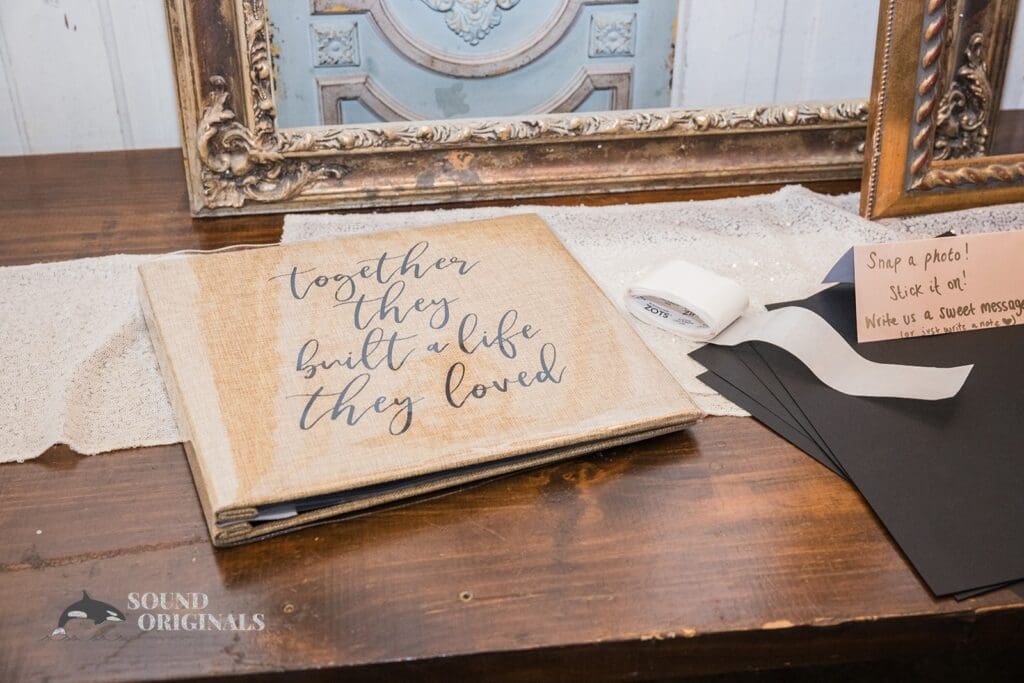 together
they
built a life
they loved
ZOTS
Snap a photo!
Stick it on!
Write us a sweet message
(or just write a note ♥)
SOUND
ORIGINALS